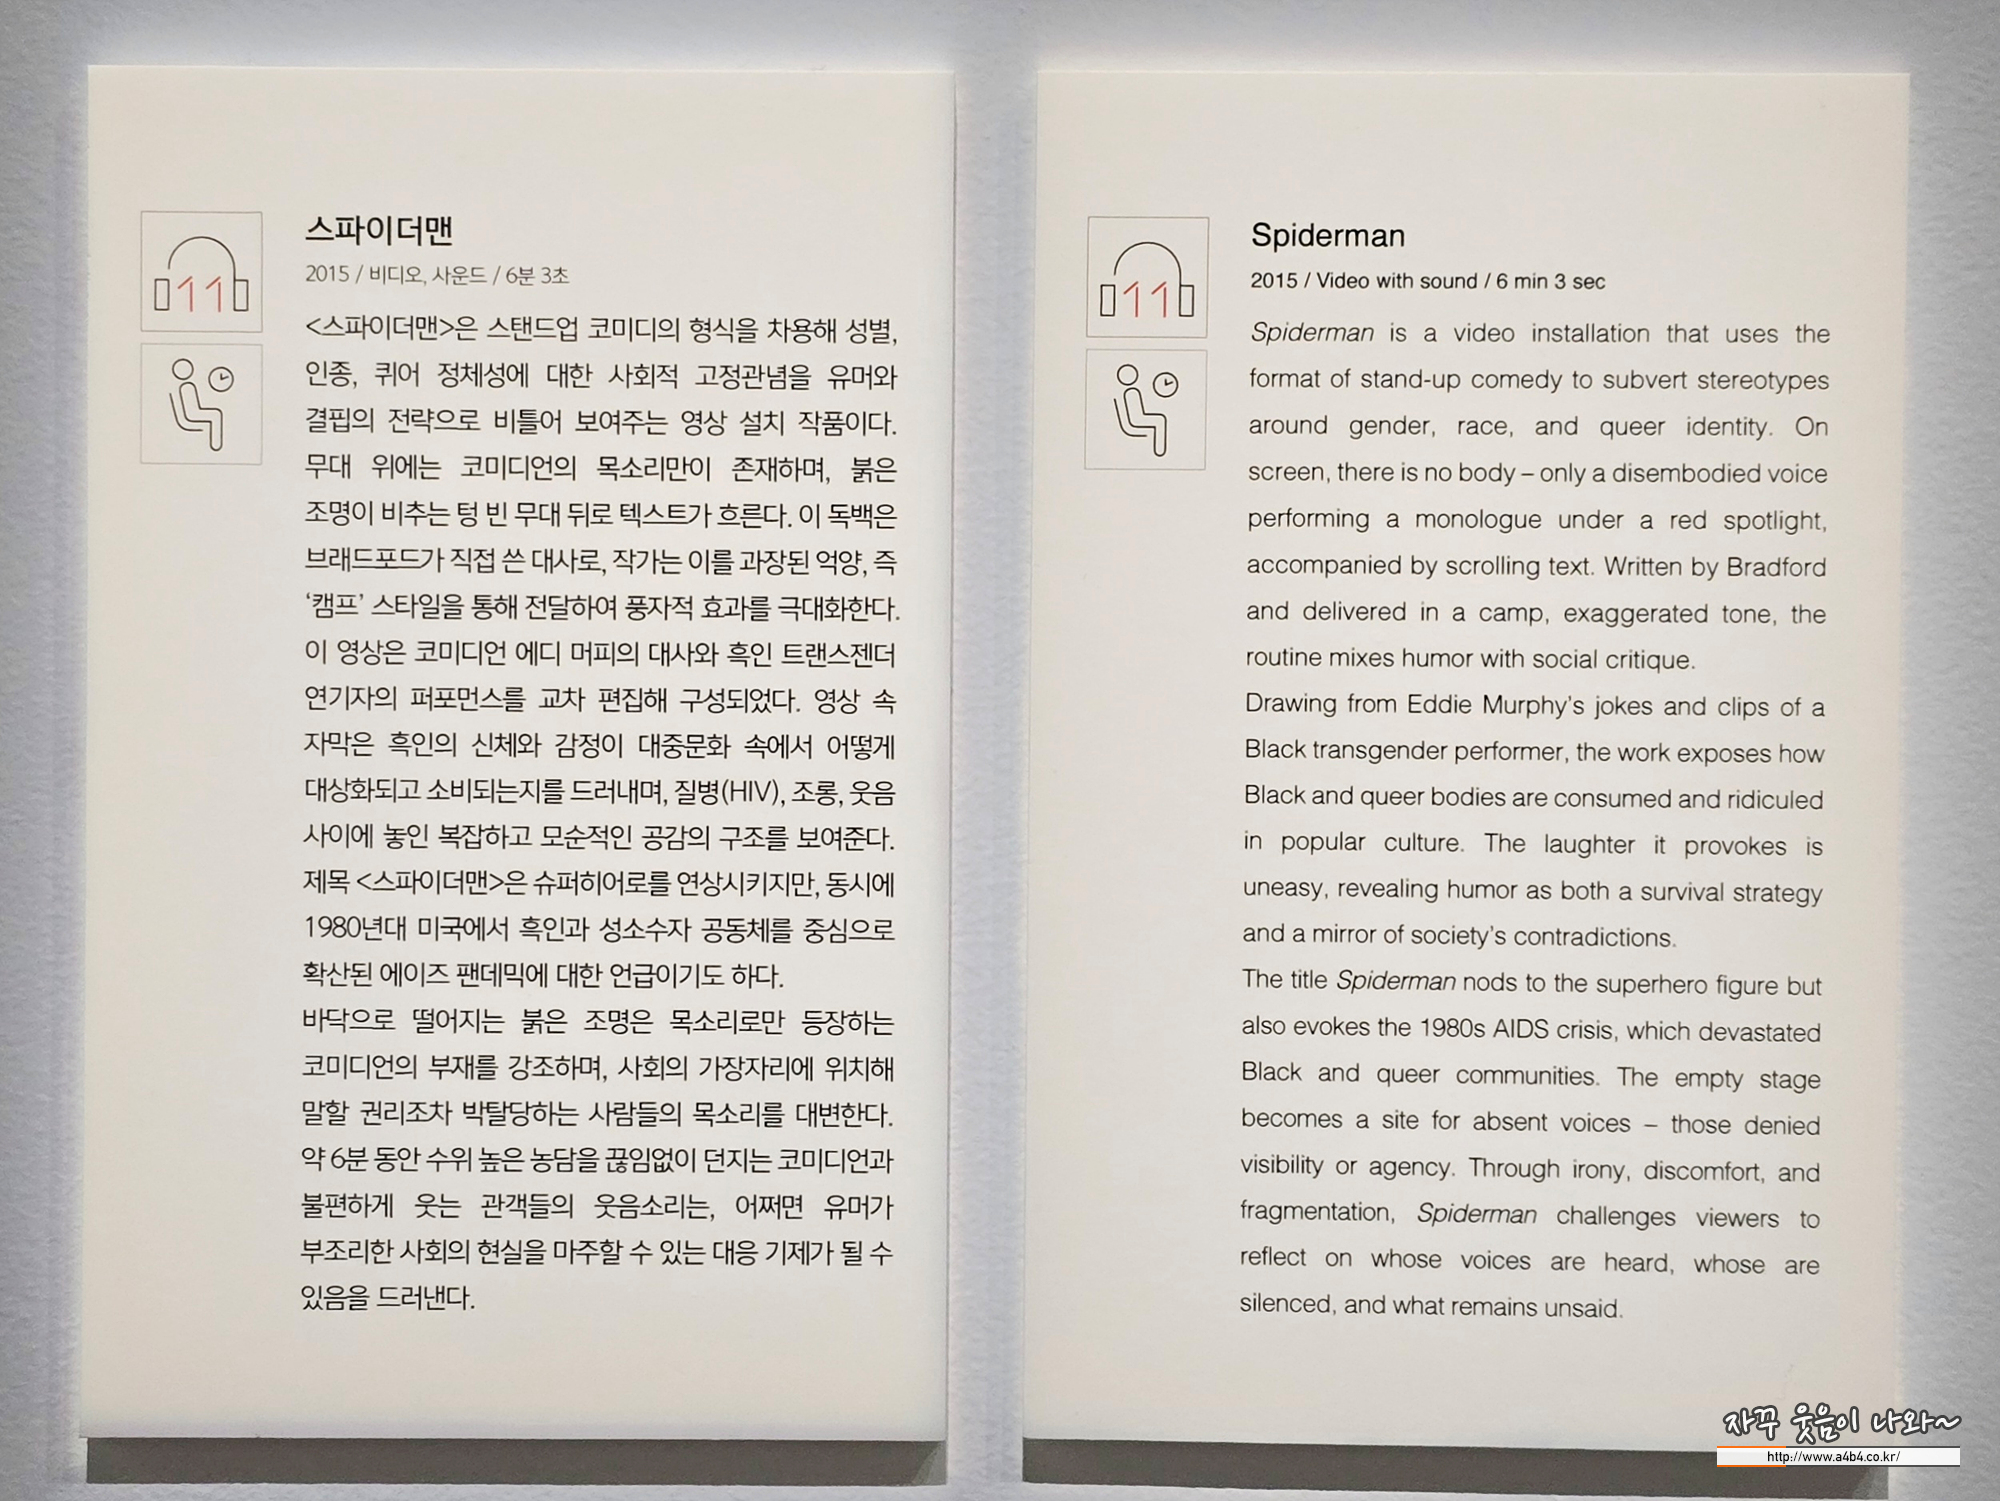 11
스파이더맨
2015 / 비디오, 사운드 / 6분 3초
<스파이더맨>은 스탠드업 코미디의 형식을 차용해 성별,
인종, 퀴어 정체성에 대한 사회적 고정관념을 유머와
결핍의 전략으로 비틀어 보여주는 영상 설치 작품이다.
무대 위에는 코미디언의 목소리만이 존재하며, 붉은
조명이 비추는 텅 빈 무대 뒤로 텍스트가 흐른다. 이 독백은
브래드포드가 직접 쓴 대사로, 작가는 이를 과장된 억양, 즉
‘캠프’ 스타일을 통해 전달하여 풍자적 효과를 극대화한다.
이 영상은 코미디언 에디 머피의 대사와 흑인 트랜스젠더
연기자의 퍼포먼스를 교차 편집해 구성되었다. 영상 속
자막은 흑인의 신체와 감정이 대중문화 속에서 어떻게
대상화되고 소비되는지를 드러내며, 질병(HIV), 조롱, 웃음
사이에 놓인 복잡하고 모순적인 공감의 구조를 보여준다.
제목 <스파이더맨>은 슈퍼히어로를 연상시키지만, 동시에
1980년대 미국에서 흑인과 성소수자 공동체를 중심으로
확산된 에이즈 팬데믹에 대한 언급이기도 하다.
바닥으로 떨어지는 붉은 조명은 목소리로만 등장하는
코미디언의 부재를 강조하며, 사회의 가장자리에 위치해
말할 권리조차 박탈당하는 사람들의 목소리를 대변한다.
약 6분 동안 수위 높은 농담을 끊임없이 던지는 코미디언과
불편하게 웃는 관객들의 웃음소리는, 어쩌면 유머가
부조리한 사회의 현실을 마주할 수 있는 대응 기제가 될 수
있음을 드러낸다.
11
Spiderman
2015 / Video with sound / 6 min 3 sec
Spiderman is a video installation that uses the
format of stand-up comedy to subvert stereotypes
around gender, race, and queer identity. On
screen, there is no body – only a disembodied voice
performing a monologue under a red spotlight,
accompanied by scrolling text. Written by Bradford
and delivered in a camp, exaggerated tone, the
routine mixes humor with social critique.
Drawing from Eddie Murphy’s jokes and clips of a
Black transgender performer, the work exposes how
Black and queer bodies are consumed and ridiculed
in popular culture. The laughter it provokes is
uneasy, revealing humor as both a survival strategy
and a mirror of society’s contradictions.
The title Spiderman nods to the superhero figure but
also evokes the 1980s AIDS crisis, which devastated
Black and queer communities. The empty stage
becomes a site for absent voices – those denied
visibility or agency. Through irony, discomfort, and
fragmentation, Spiderman challenges viewers to
reflect on whose voices are heard, whose are
silenced, and what remains unsaid.
자꾸 웃음이 나와~
http://www.a4b4.co.kr/